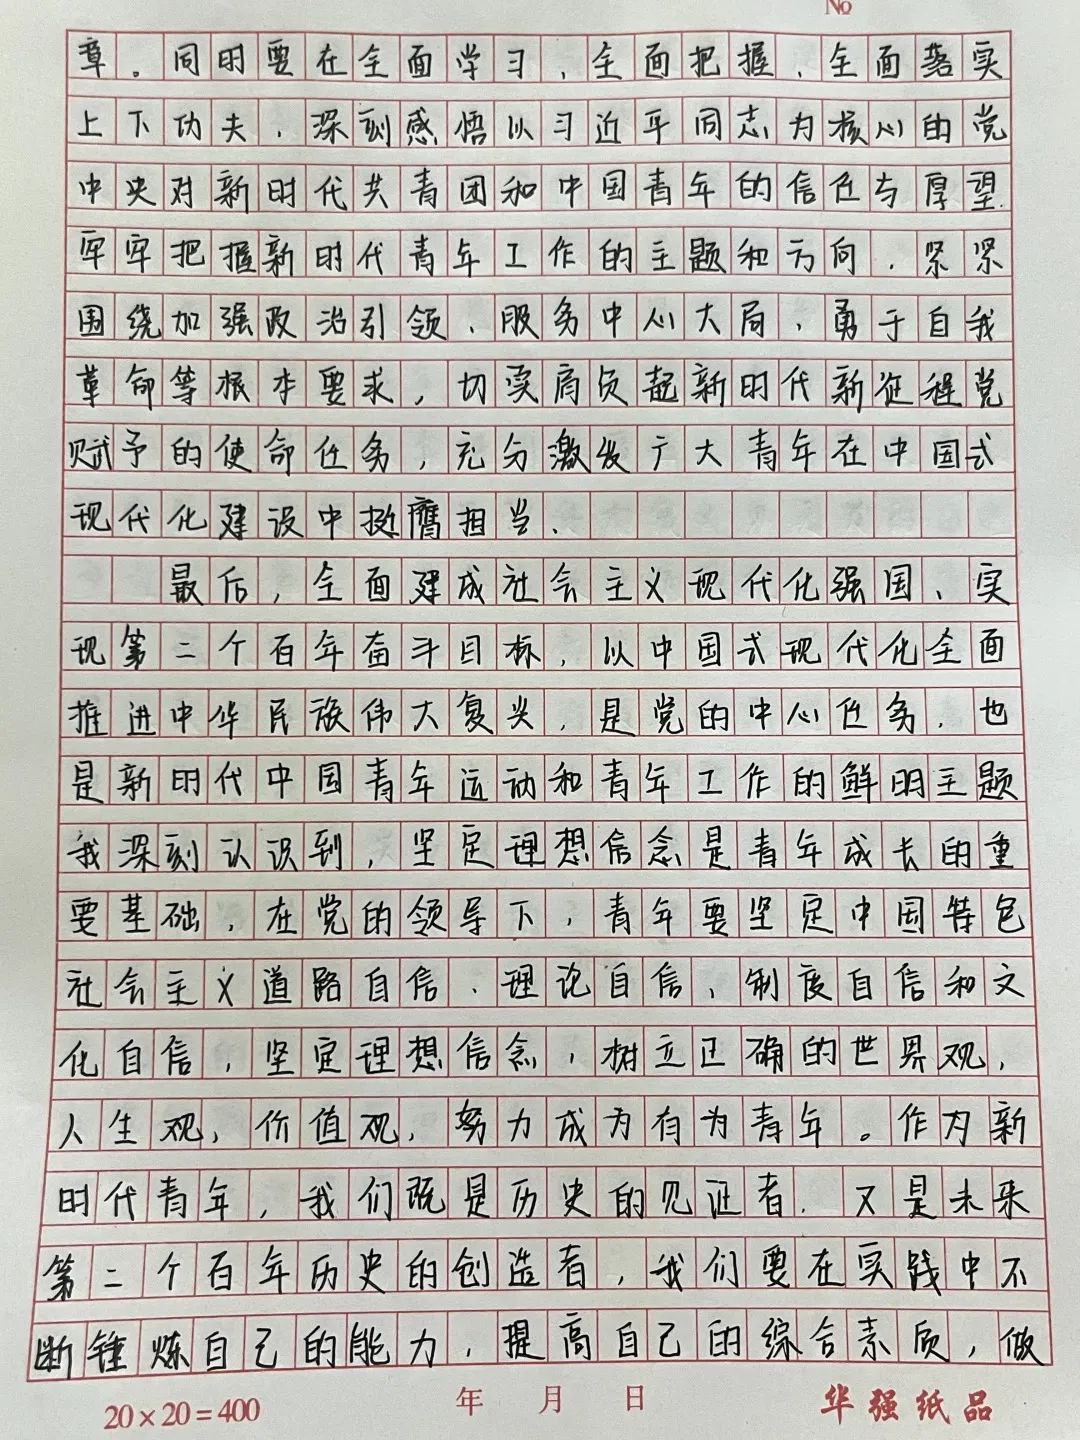 No
章。同时要在全面学习、全面把握、全面落实
上下功夫,深刻感悟以习近平同志为核心的党
中央对新时代共青团和中国青年的信任与厚望.
牢牢把握新时代青年工作的主题和方向,紧紧
围绕加强政治引领、服务中心大局,勇于自我
革命等根本要求,切实肩负起新时代新征程党
赋予的使命任务,充分激发广大青年在中国式
现代化建设中挺膺担当.
最后,全面建成社会主义现代化强国、实
现第二个百年奋斗目标,以中国式现代化全面
推进中华民族伟大复兴,是党的中心任务,也
是新时代中国青年运动和青年工作的鲜明主题
我深刻认识到,坚定理想信念是青年成长的重
要基础,在党的领导下,青年要坚定中国特色
社会主义道路自信、理论自信、制度自信和文
化自信,坚定理想信念,树立正确的世界观,
人生观,价值观,努力成为有为青年。作为新
时代青年,我们既是历史的见证者.又是未来
第二个百年历史的创造者,我们要在实践中不
断锤炼自己的能力,提高自己的综合素质,做
20×20=400 年 月 日 华强纸品